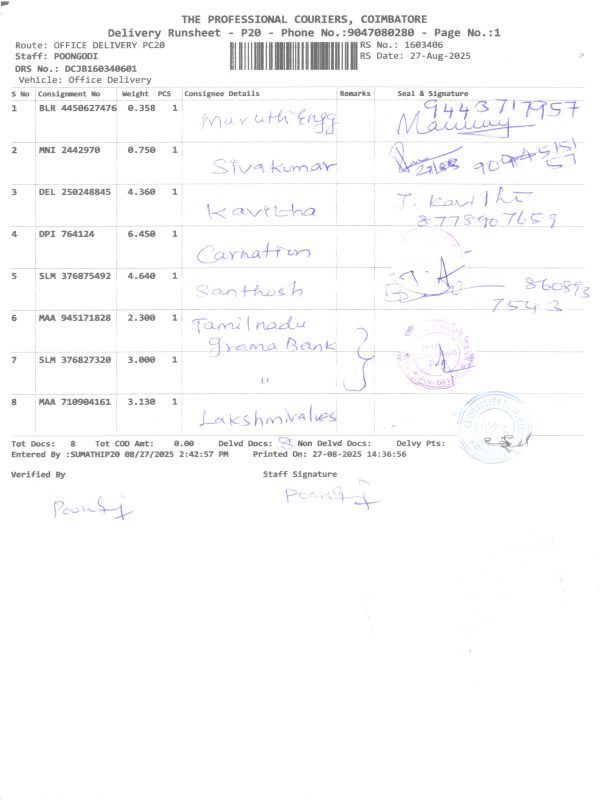 THE PROFESSIONAL COURIERS, COIMBATORE
Delivery Runsheet - P20 - Phone No.:9047080280 - Page No.:1
Route: OFFICE DELIVERY PC20 RS No.: 1603406
Staff: POONGODI RS Date: 27-Aug-2025
DRS No.: DCJB160340601
Vehicle: Office Delivery
S No Consignment No Weight PCS Consignee Details Remarks Seal & Signature
1 BLR 4450627476 0.358 1 Maruthi Engg 9443717957
2 MNI 2442970 0.750 1 Sivakumar
3 DEL 250248845 4.360 1 Kavitha J. Kavithi
8778907659
4 DPI 764124 6.450 1 Carnation
5 SLM 376875492 4.640 1 Santhosh 860893
7543
6 MAA 945171828 2.300 1 Tamilnadu
grama Bank
7 SLM 376827320 3.000 1 "
8 MAA 710904161 3.130 1 Lakshmivalies
Tot Docs: 8 Tot COD Amt: 0.00 Delvd Docs: 8 Non Delvd Docs: Delvy Pts:
Entered By :SUMATHIP20 08/27/2025 2:42:57 PM Printed On: 27-08-2025 14:36:56
Verified By Staff Signature